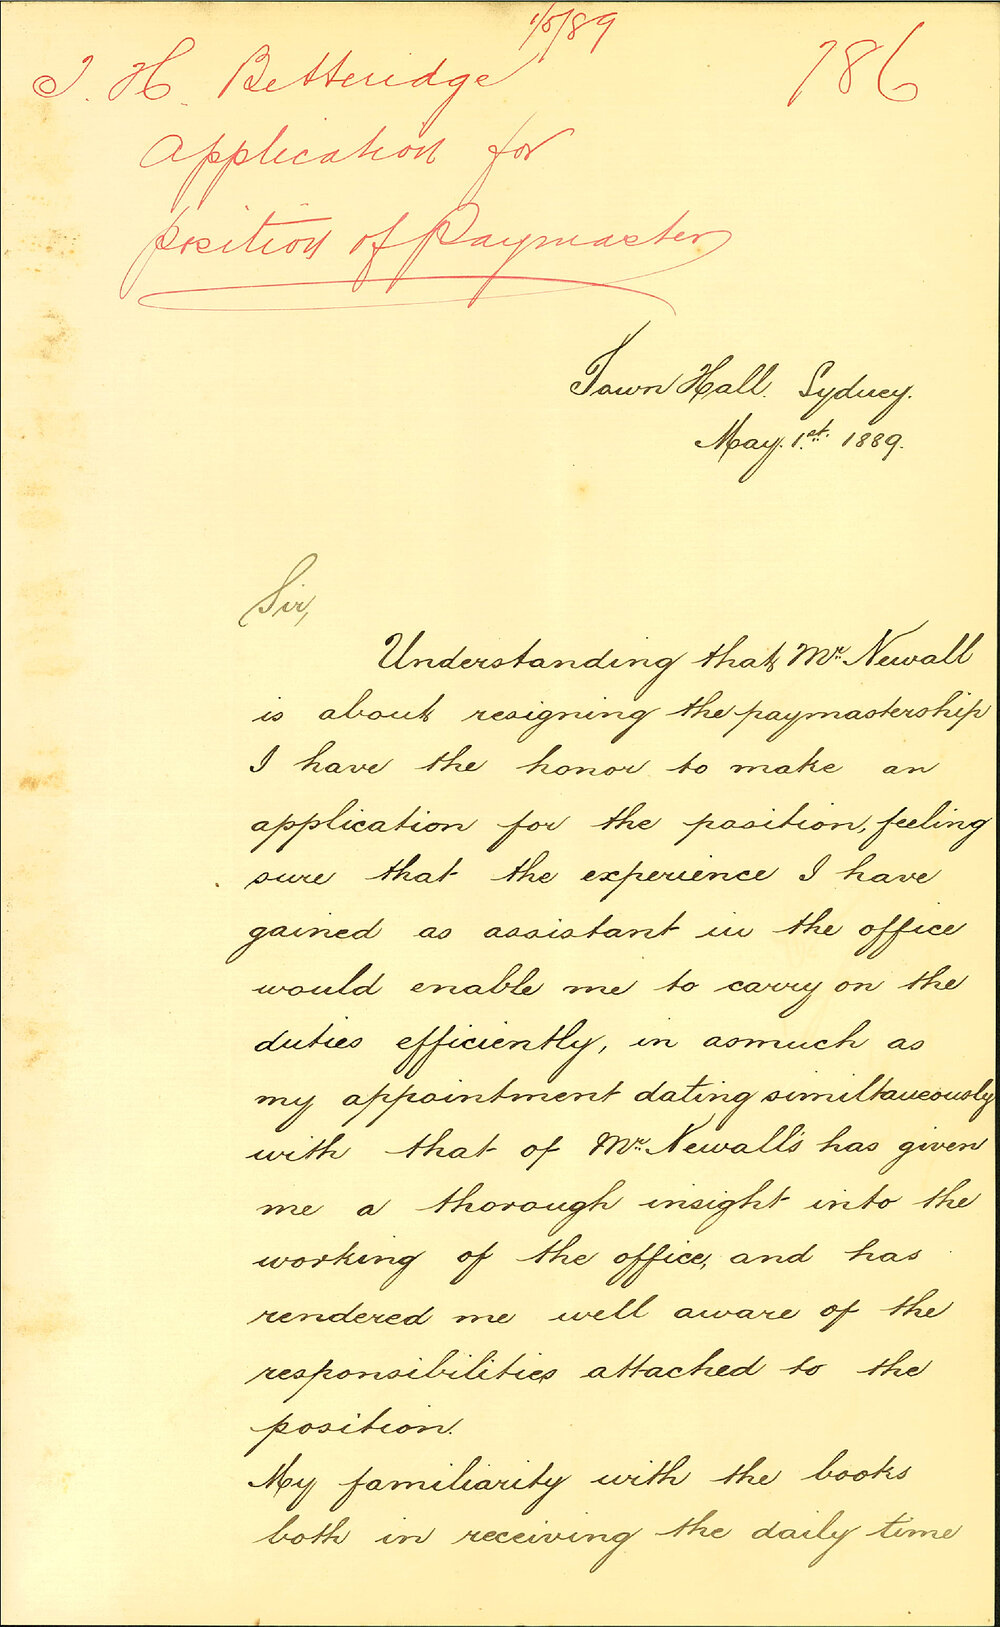 1/5/89
J. H. Betteridge 786
Application for
position of Paymaster
Town Hall. Sydney.
May. 1st. 1889.
Sir,
Understanding that Mr. Newall
is about resigning the paymastership
I have the honor to make an
application for the position, feeling
sure that the experience I have
gained as assistant in the office
would enable me to carry on the
duties efficiently, in asmuch as
my appointment dating similtaneously
with that of Mr. Newall's has given
me a thorough insight into the
working of the office, and has
rendered me well aware of the
responsibilities attached to the
position.
My familiarity with the books
both in receiving the daily time